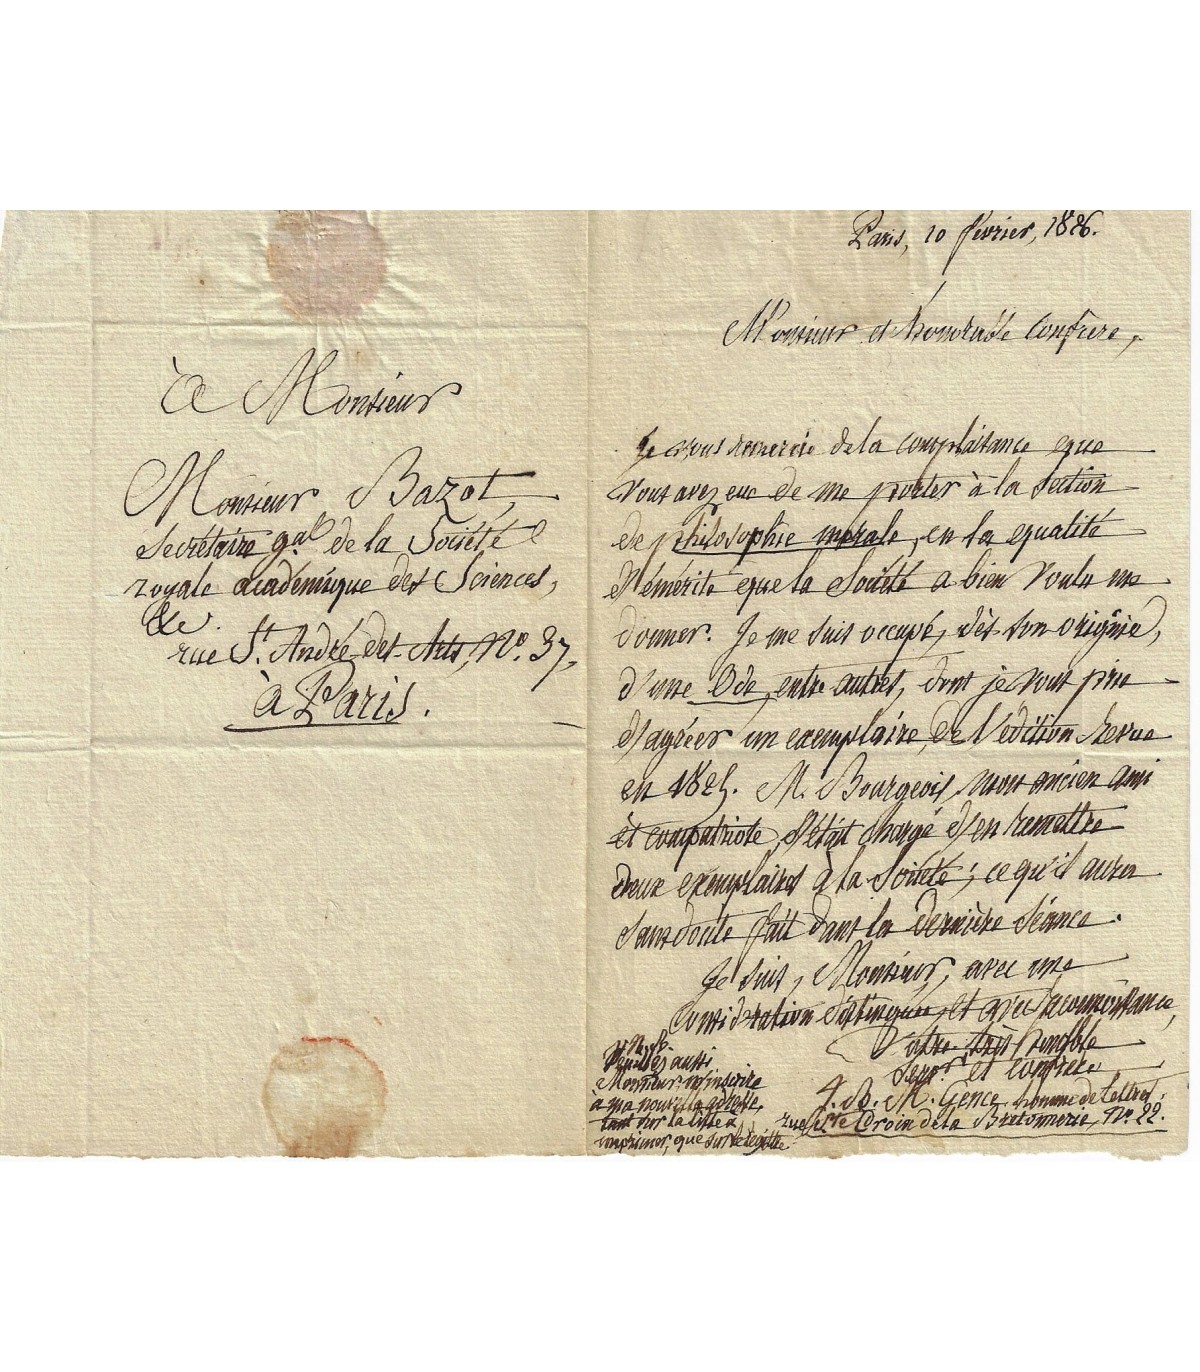 à Monsieur
Monsieur Bazot,
Secrétaire g.al de la Société
royale académique des Sciences,
&c.
rue St. André-des-Arts, No. 37,
à Paris.
Paris, 10 février, 1826.
Monsieur et honorable Confrère,
Je vous remercie de la complaisance que
vous avez eue de me porter à la section
de philosophie morale, en la qualité
d'émérite que la Société a bien voulu me
donner. Je me suis occupé, dès son origine,
d'une Ode, entre autres, dont je vous prie
d'agréer un exemplaire, de l'édition revue
en 1825. M. Bourgeois, mon ancien ami
et compatriote, s'était chargé d'en remettre
deux exemplaires à la Société; ce qu'il aura
sans doute fait dans la dernière séance.
Je suis, Monsieur, avec une
considération distinguée, et avec reconnaissance,
Votre très humble
serv.r et confrère
J. B. M. Gence, homme de lettres,
rue Ste Croix de la Bretonnerie, No. 22.
Veuillez aussi
Monsieur m'inscrire
à ma nouvelle adresse,
tant sur la liste à
imprimer, que sur le registre